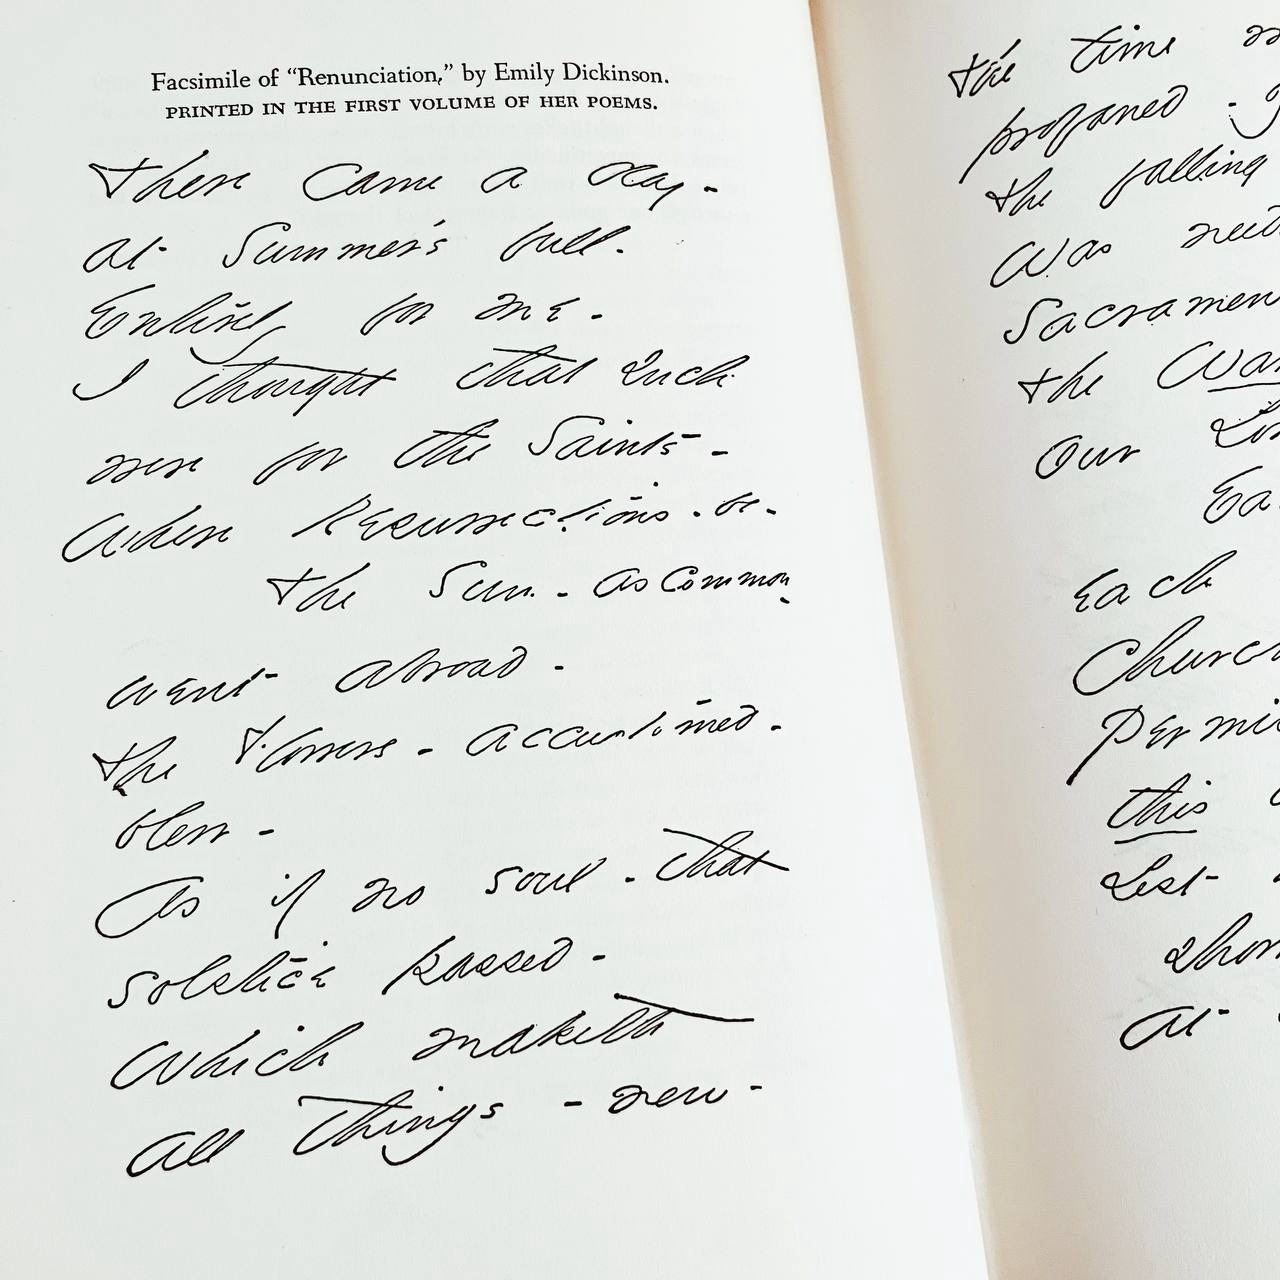 Facsimile of "Renunciation," by Emily Dickinson.
PRINTED IN THE FIRST VOLUME OF HER POEMS.
There came a day -
at Summer's full -
Entirely for me -
I thought that such
were for the Saints -
Where Resurrections - be -
The Sun - as common
went abroad -
The flowers - accustomed -
blew -
As if no soul - that
solstice passed -
Which maketh
all things - new -
The time
profaned -
the falling
Was
Sacramen
the War
Our
Ea
Each
Church
Permi
this
Lest
At